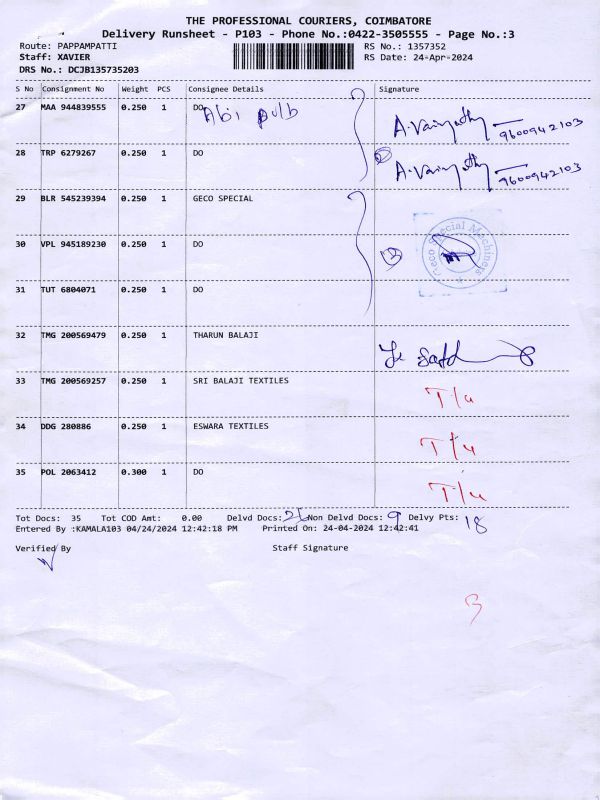 THE PROFESSIONAL COURIERS, COIMBATORE
Delivery Runsheet - P103 - Phone No.:0422-3505555 - Page No.:3
Route: PAPPAMPATTI RS No.: 1357352
Staff: XAVIER RS Date: 24-Apr-2024
DRS No.: DCJB135735203
S No Consignment No Weight PCS Consignee Details Signature
27 MAA 944839555 0.250 1 DO
Abi pulb
A. 9600942103
28 TRP 6279267 0.250 1 DO
A. 9600942103
29 BLR 545239394 0.250 1 GECO SPECIAL
Geco Special Machines
30 VPL 945189230 0.250 1 DO
31 TUT 6804071 0.250 1 DO
32 TMG 200569479 0.250 1 THARUN BALAJI
33 TMG 200569257 0.250 1 SRI BALAJI TEXTILES T/u
34 DDG 280886 0.250 1 ESWARA TEXTILES T/u
35 POL 2063412 0.300 1 DO T/u
Tot Docs: 35 Tot COD Amt: 0.00 Delvd Docs: Non Delvd Docs: 9 Delvy Pts: 18
Entered By :KAMALA103 04/24/2024 12:42:18 PM Printed On: 24-04-2024 12:42:41
Verified By Staff Signature
3